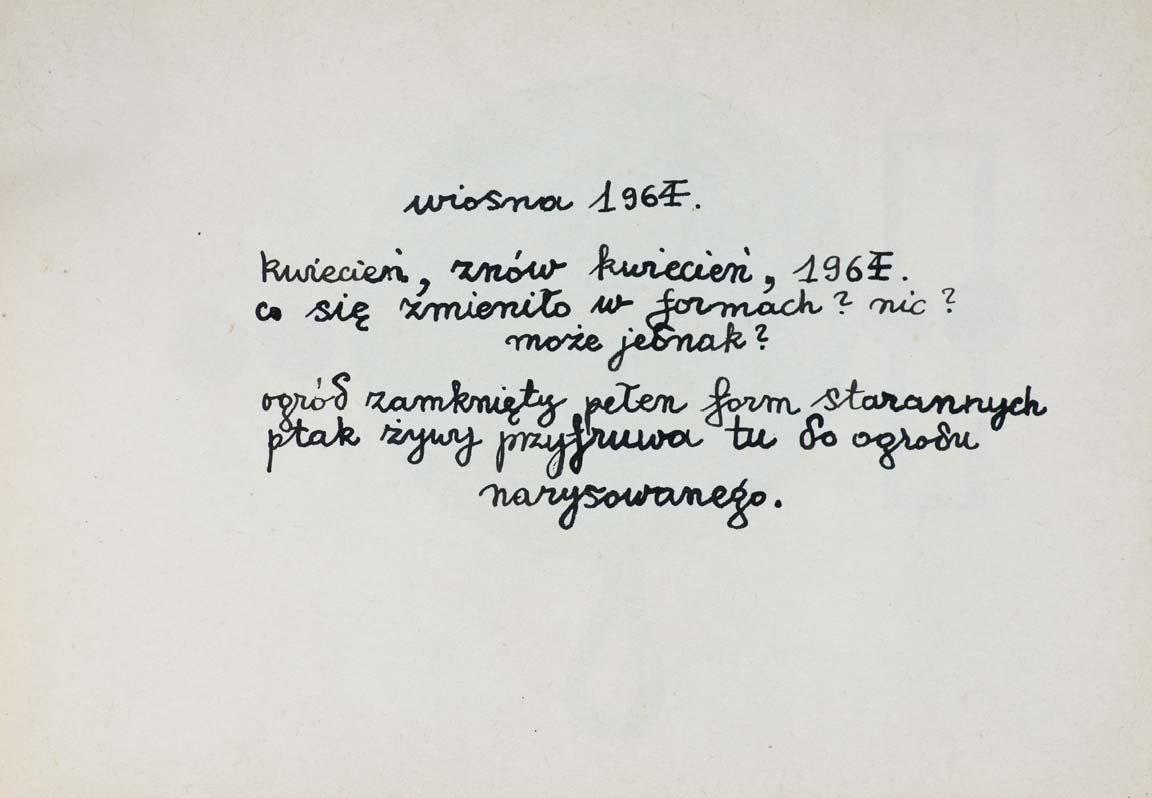 wiosna 1964.
kwiecień, znów kwiecień, 1964.
co się zmieniło w formach? nic?
może jednak?
ogród zamknięty pełen form starannych
ptak żywy przyfruwa tu do ogrodu
narysowanego.